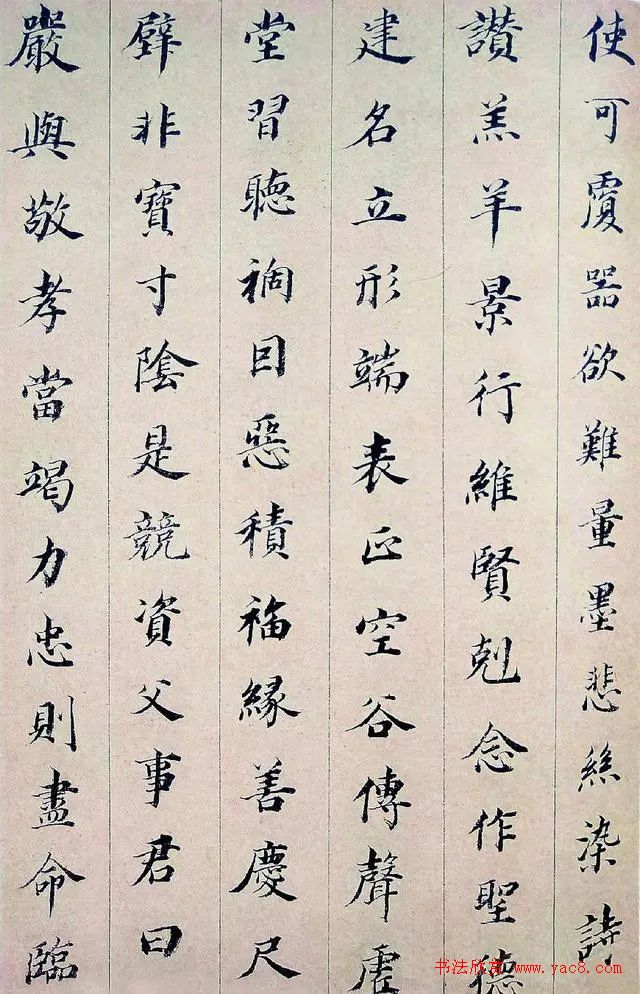 使可覆器欲難量墨悲絲染詩
讚羔羊景行維賢剋念作聖德
建名立形端表正空谷傳聲虛
堂習聽禍因惡積福緣善慶尺
璧非寶寸陰是競資父事君曰
嚴與敬孝當竭力忠則盡命臨
书法欣赏 www.yac8.com